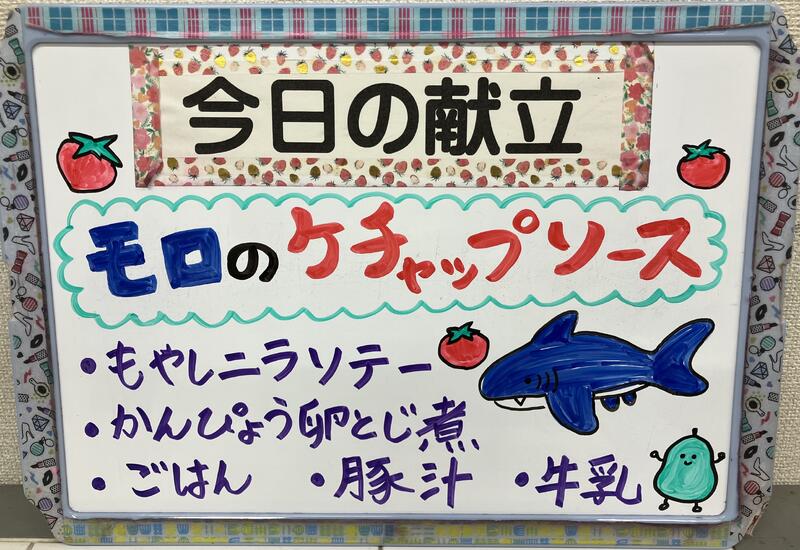 今日の献立
モロのケチャップソース
・もやしニラソテー
・かんぴょう卵とじ煮
・ごはん ・豚汁 ・牛乳